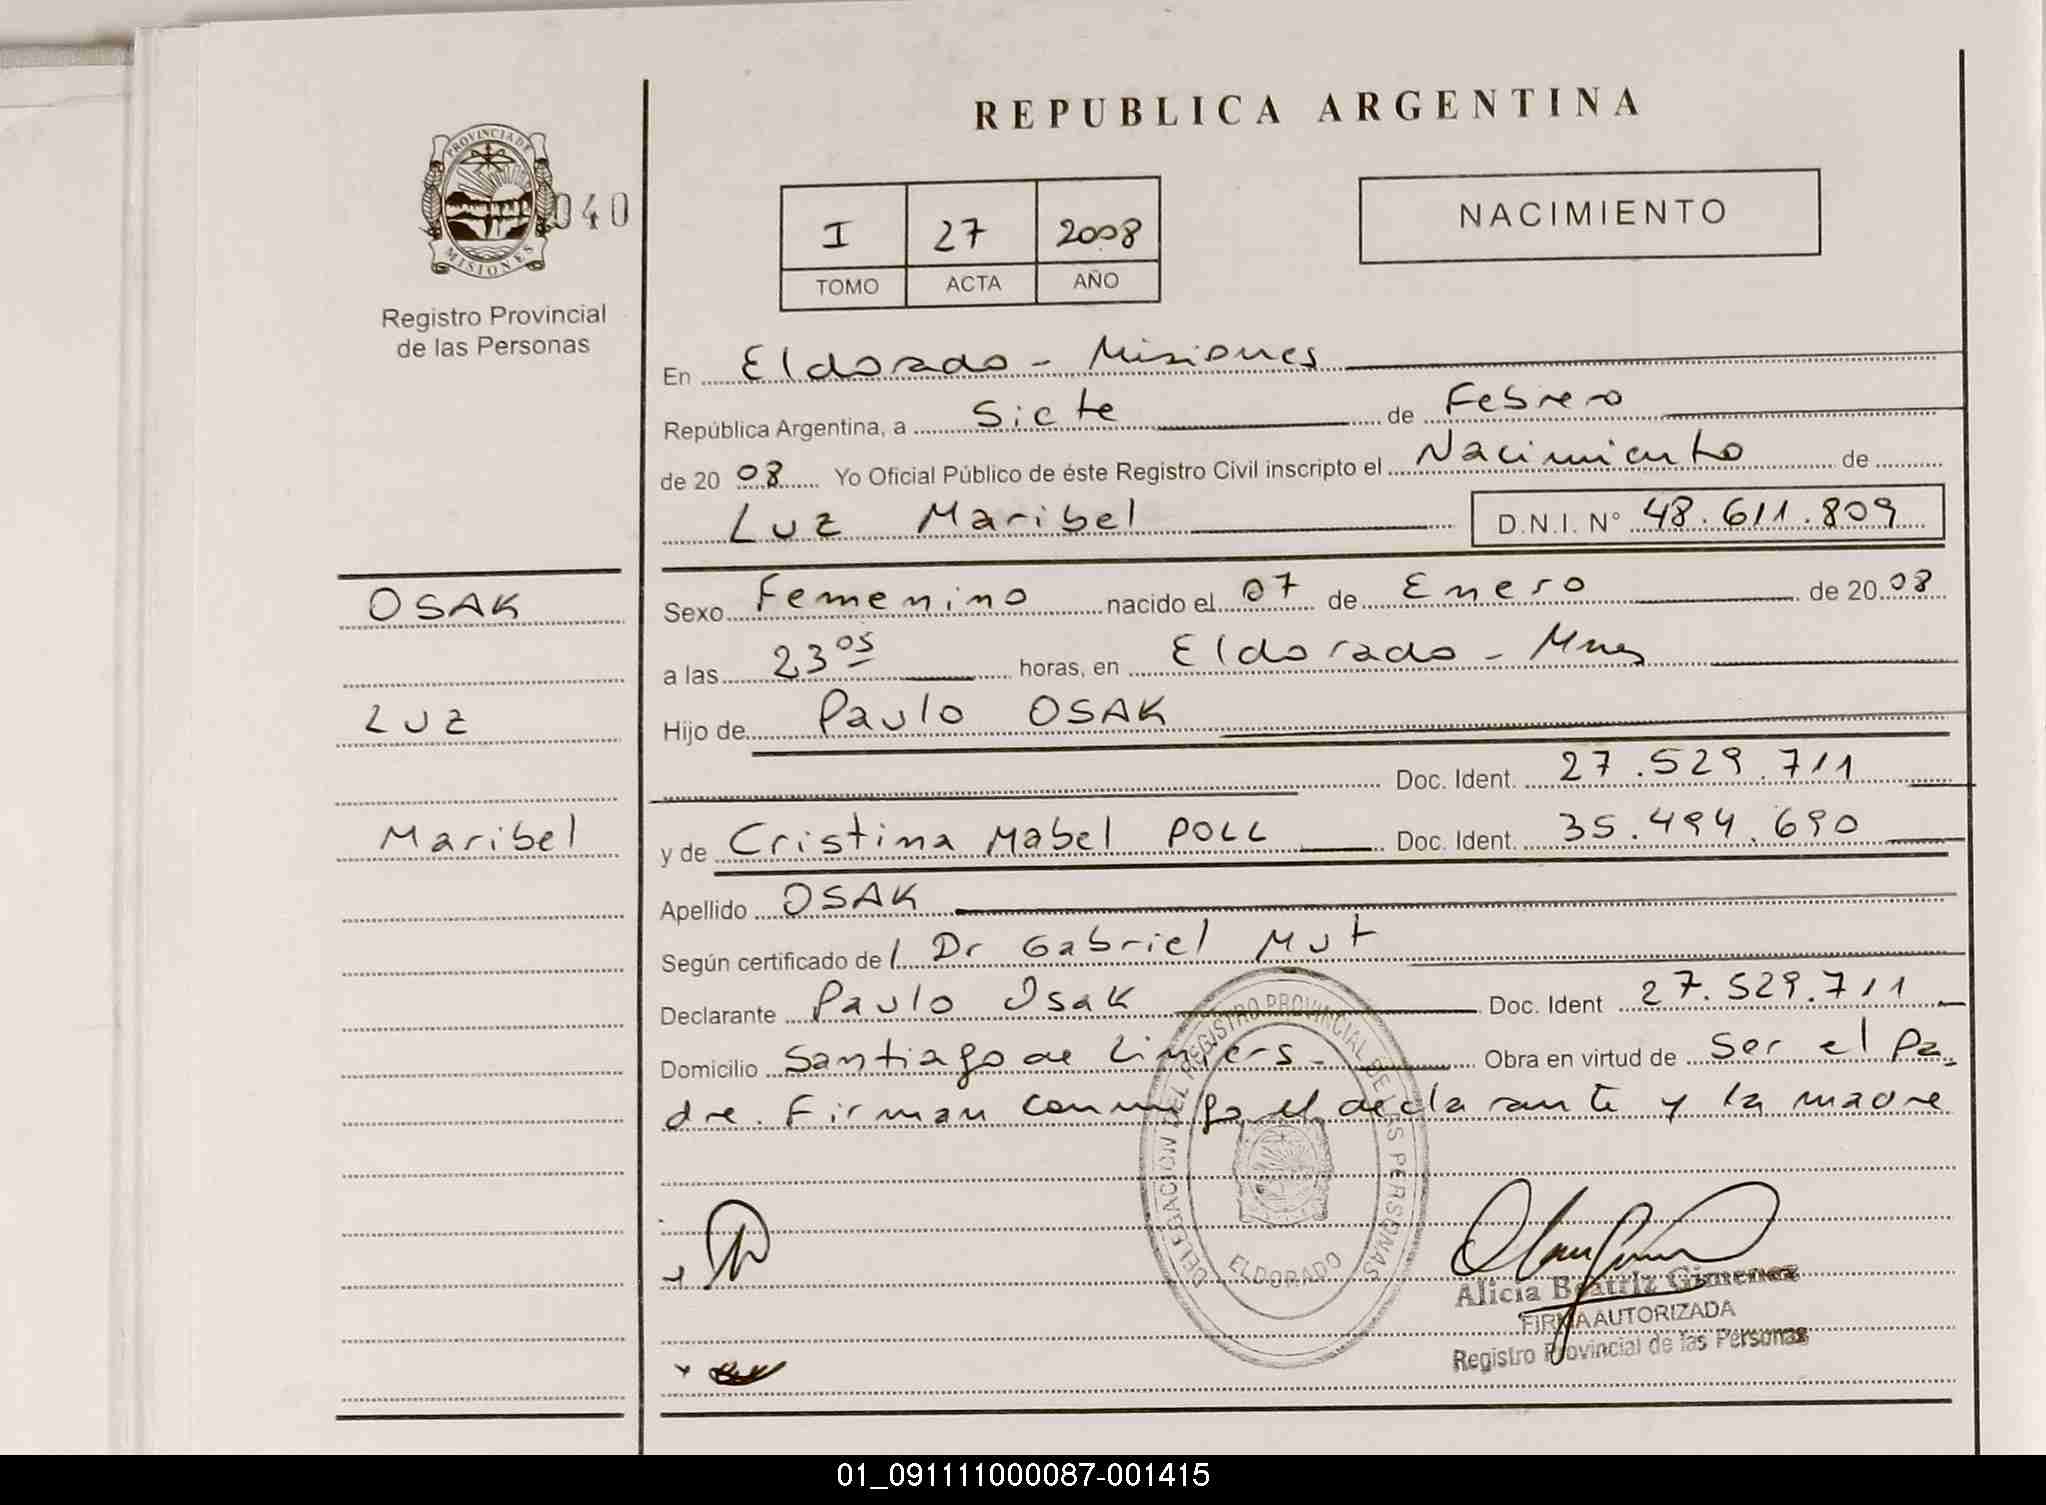 REPUBLICA ARGENTINA
PROVINCIA DE
MISIONES
040
Registro Provincial
de las Personas
I 27 2008
TOMO ACTA AÑO
NACIMIENTO
En Eldorado - Misiones
República Argentina, a Siete de Febrero
de 2008 Yo Oficial Público de éste Registro Civil inscripto el Nacimiento de
Luz Maribel D.N.I. N° 48.611.809
OSAK
Luz
Maribel
Sexo Femenino nacido el 07 de Enero de 2008
a las 23 05 horas, en Eldorado - Mnes
Hijo de Paulo OSAK
Doc. Ident. 27.529.711
y de Cristina Mabel POLL Doc. Ident. 35.494.690
Apellido OSAK
Según certificado de Dr Gabriel Mut
Declarante Paulo Osak Doc. Ident 27.529.711
Domicilio Santiago de Liniers - Obra en virtud de Ser el Pa-
dre. Firman conmigo el declarante y la madre
DELEGACION DEL REGISTRO PROVINCIAL DE LAS PERSONAS
ELDORADO
Alicia Beatriz Gimenez
FIRMA AUTORIZADA
Registro Provincial de las Personas
01_091111000087-001415